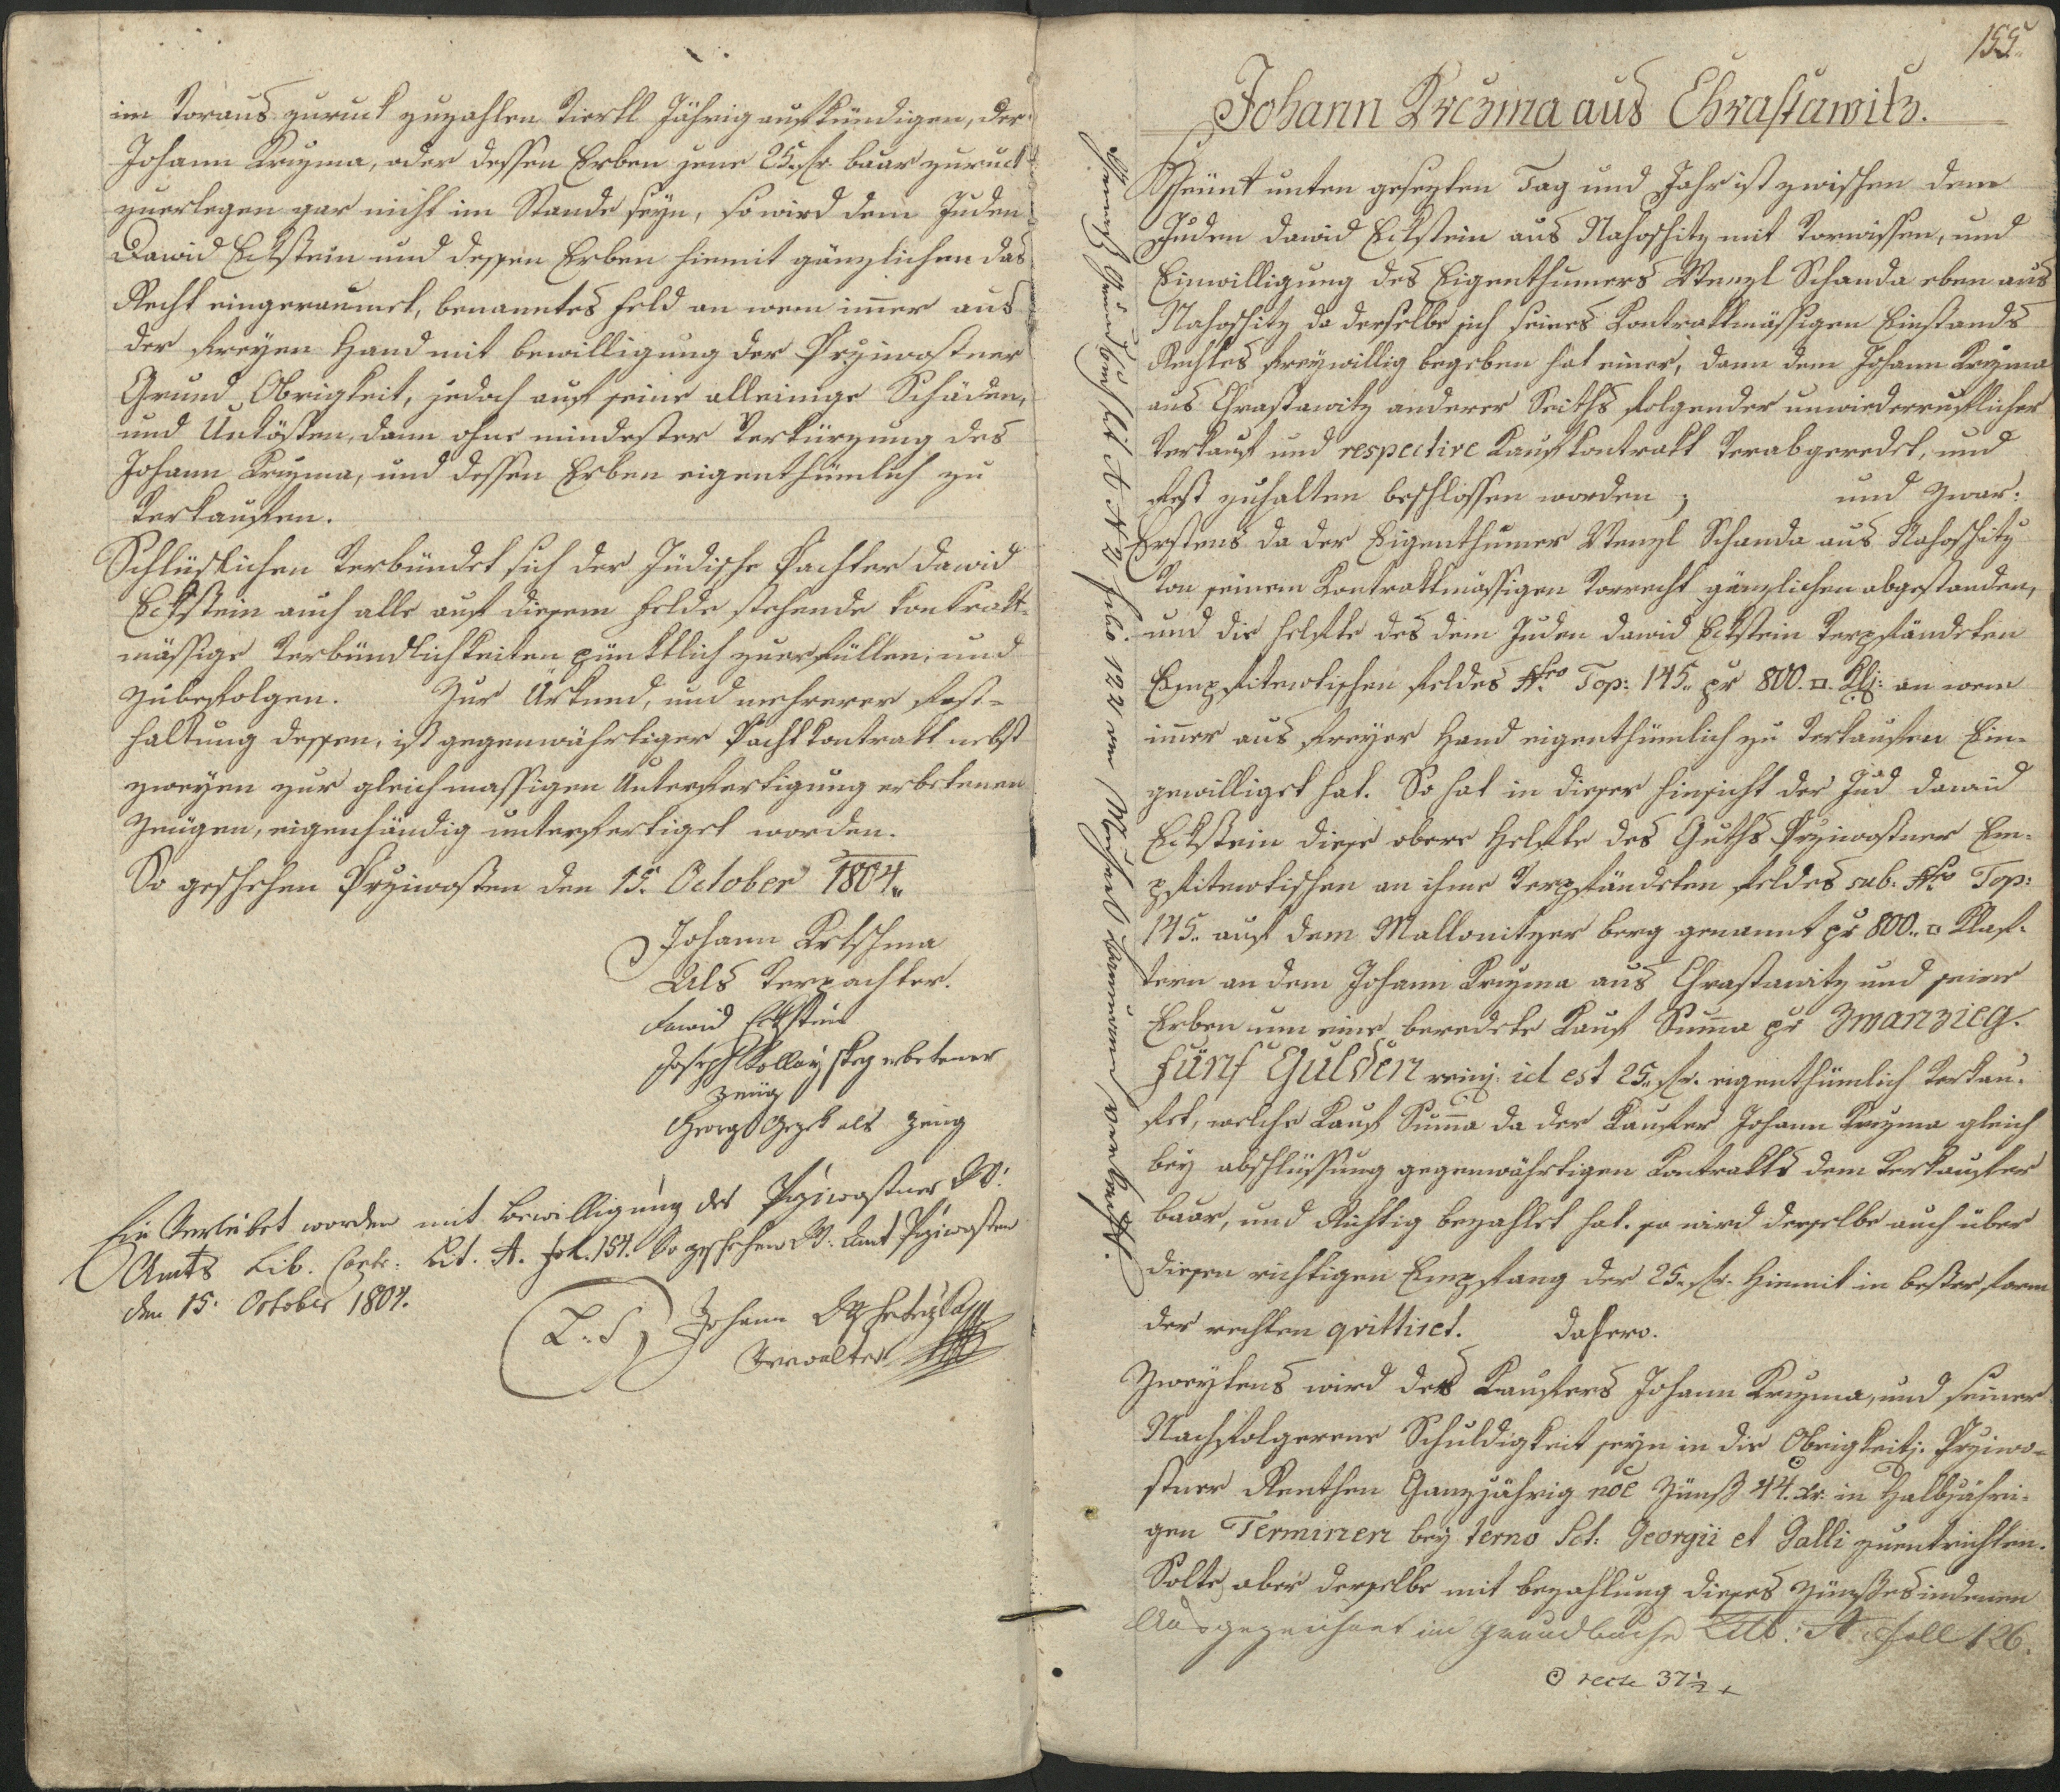 im Voraus zuruck zuzahlen Viertl Jährig aufkündigen, der
Johann Krczma, oder dessen Erben jene 25 fr. baar zuruck
zuerlegen gar nicht im Stande seyn, so wird dem Juden
Dawid Eckstein und dessen Erben hiemit gänzlichen das
Recht eingeraumet, benanntes Feld an wem imer aus
der freyen Hand mit bewilligung der Przimoßtner
Grund Obrigkeit, jedoch auf seine alleinige Schäden,
und Unkösten, dann ohne mindester Verkürzung des
Johann Krczma, und dessen Erben eigenthümlich zu
Verkaufen.
Schlüßlichen Verbündet sich der Jüdische Pachter Dawid
Eckstein auch alle auf diesem Felde stehende kontrakt-
mässige Verbündlichkeiten pünktlich zuerfüllen, und
zubefolgen. Zur Urkund, und mehrerer Fest-
haltung dessen, ist gegenwährtiger Pachtkontrakt nebst
zweyen zur gleichmassigen Unterfertigung erbetenen
Zeugen, eigenhändig unterfertiget worden.
So geschehen Przimoßten den 15. October 1804.
Johann Krtschma
Als Verpachter.
Dawid Eckstein
Joseph erbetener
Zeüg
Georg als Zeug
Ein Verleibet worden mit Bewilligung des Przimoßtner W:
Amts Lib. Contr: Lit. A. fol. 154. So geschehen W: Amt Przimoßten
den 15. October 1804.
L. S. Johann
Verwalter
155.
Johann Krczma aus Chrastawitz.
Heünt unten gesezten Tag und Jahr ist zwischen dem
Juden Dawid Eckstein aus Nahoschitz mit Vorwissen, und
Einwilligung des Eigenthumers Wenzl Schanda eben aus
Nahoschitz da derselbe sich seines Kontraktmässigen Einstands
Rechtes freywillig begeben hat einer, dann dem Johann Krczma
aus Chrastawitz anderer Seiths folgender unwiederruflicher
Verkauf und respective Kaufkontrakt Verabgeredet, und
fest zuhalten beschlossen worden; und zwar:
Erstens da der Eigenthumer Wenzl Schanda aus Nahoschitz
Von seinem Kontraktmässigen Vorrecht gänzlichen abgestanden,
und die Helfte des dem Juden Dawid Eckstein Verpfändeten
Empfiteutischen Feldes Nro Top: 145. pr 800. □. Klf: an wem
imer aus freyer Hand eigenthümlich zu Verkaufen Ein-
gewilliget hat. So hat in dieser Hinsicht der Jud Dawid
Eckstein diese obere Helfte des Guths Przimoßtner Em-
pfiteutischen an ihme Verpfändeten Feldes sub. Nro Top:
145. auf dem Mallonitzer berg genannt pr 800. □ Klaf-
tern an dem Johann Krczma aus Chrastawitz und seine
Erben um eine beredete Kauf Suma pr Zwanzieg
fünf Gulden reinj. id est 25 fr. eigenthümlich Verkau-
fet, welche Kauf Suma da der Kaufer Johann Krczma gleich
bey abschlüssung gegenwährtigen Kontrakts dem Verkaufer
baar, und Richtig bezahlet hat. so wird derselbe auch über
diesen richtigen Empfang der 25 fr. hiemit in bester form
der rechten qvittiret. Dahero.
Zweytens wird des Kaufers Johann Krczma, und seiner
Nachfolgerene Schuldigkeit seyn in die Obrigkeitj: Przimo-
ßtner Renthen Ganzjährig noe Zünß 44. xr. in Halbjähri-
gen Terminen bey termo Sct: Georgii et Galli zuentrichten.
Solte aber derselbe mit bezahlung dieses Zünßes in denen
Ausgezeichnet im Grundbuche Litb: A foll 126.
recte 37½ x